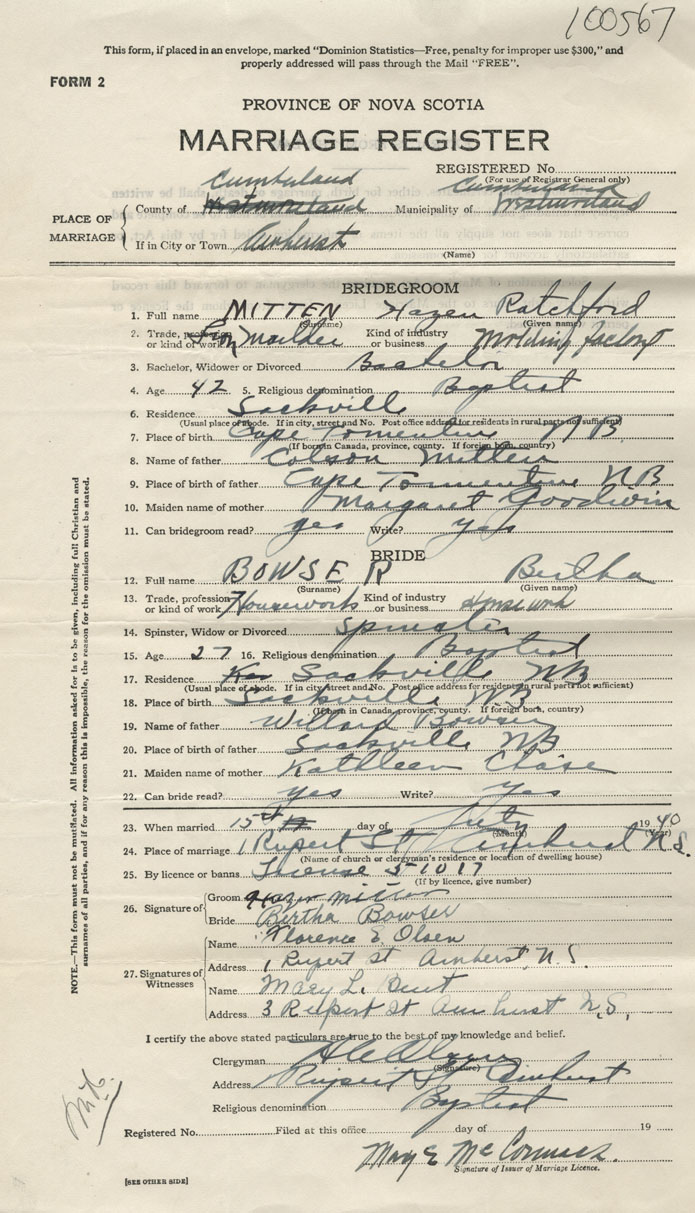 100567
This form, if placed in an envelope, marked "Dominion Statistics—Free, penalty for improper use $300," and
properly addressed will pass through the Mail "FREE".
FORM 2
PROVINCE OF NOVA SCOTIA
MARRIAGE REGISTER
REGISTERED No.
(For use of Registrar General only)
Cumberland Cumberland
PLACE OF MARRIAGE County of Westmoreland Municipality of Westmorland
If in City or Town Amherst
(Name)
BRIDEGROOM
1. Full name MITTEN Hazen Ratchford
(Surname) (Given name)
2. Trade, profession or kind of work Iron Moulder Kind of industry or business Molding factory
3. Bachelor, Widower or Divorced Bachelor
4. Age 42 5. Religious denomination Baptist
6. Residence Sackville
(Usual place of abode. If in city, street and No. Post office address for residents in rural parts not sufficient)
7. Place of birth Cape Tormentine N B
(If born in Canada, province, county. If foreign born, country)
8. Name of father Colson Mitten
9. Place of birth of father Cape Tormentine NB
10. Maiden name of mother Margaret Goodwin
11. Can bridegroom read? yes Write? yes
BRIDE
12. Full name BOWSER Bertha
(Surname) (Given name)
13. Trade, profession or kind of work Housework Kind of industry or business Housework
14. Spinster, Widow or Divorced Spinster
15. Age 27 16. Religious denomination Baptist
17. Residence Sackville NB
(Usual place of abode. If in city, street and No. Post office address for residents in rural parts not sufficient)
18. Place of birth Sackville NB
(If born in Canada, province, county. If foreign born, country)
19. Name of father Willard Bowser
20. Place of birth of father Sackville NB
21. Maiden name of mother Kathleen Chase
22. Can bride read? yes Write? yes
23. When married 15th day of July 1940
(Month) (Year)
24. Place of marriage 1 Rupert St Amherst N.S.
(Name of church or clergyman's residence or location of dwelling house)
25. By licence or banns License 51017
(If by licence, give number)
26. Signature of Groom Hazen Mitten
Bride Bertha Bowser
27. Signatures of Witnesses Name Florence E Olsen
Address 1 Rupert St Amherst, N.S.
Name Mary L.
Address 3 Rupert St Amherst N.S.,
I certify the above stated particulars are true to the best of my knowledge and belief.
Clergyman
(Signature)
Address Rupert St Amherst
Religious denomination Baptist
Registered No. Filed at this office day of 19
May E McCormack
Signature of Issuer of Marriage Licence.
[SEE OTHER SIDE]
NOTE.—This form must not be mutilated. All information asked for is to be given, including full Christian and
surnames of all parties, and if for any reason this is impossible, the reason for the omission must be stated.